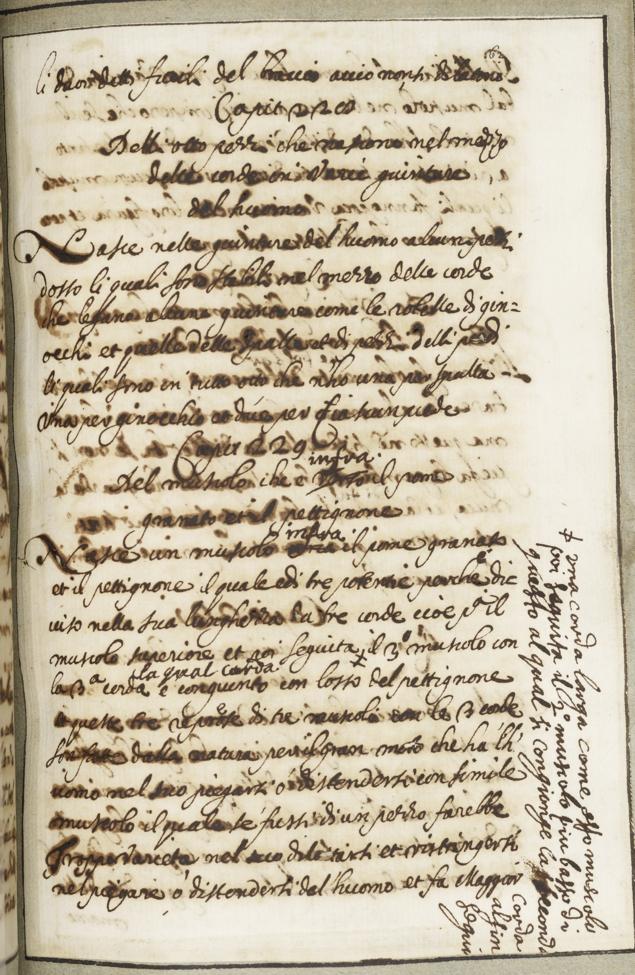 li duoi detti fucili del braccio accio non si
Capit 228
Delli otto pezzi che nascono nel mezzo
delle corde in varie guinture
del huomo
Nasce nelle guinture del huomo alcuni pezzi
dosso li quali sono stabili nel mezzo delle corde
che legano alcune guinture come le rotelle di gin=
occhi et quelle delle spalle et di pezzi delli piedi
li quali sono in tutto otto che n'ho una per spalla
una per ginocchio et due per ciascun piede
Capit 229
infra
Del muscolo che e il pome
granato et il pettignone
infra
Nasce un muscolo il pome granato
et il pettignone il quale e di tre potentie perche e dic
viso nella sua lunghezza da tre corde cioe p il
muscolo superiore et poi seguita il 3º muscolo con
la qual corda
la 3ª corda e congiunto con losso del pettignone
e queste tre di tre muscoli con le 3 corde
son fatte dalla natura per il gran moto che ha l'h
uomo nel suo piegarsi o distendersi con simile
muscolo il quale se fussi di un pezzo farebbe
troppa varieta nel suo dilatarsi et ristringersi
nel piegare o distendersi del huomo et fa Maggior
+ una corda larga come esso muscolo
poi seguita il 2º muscolo piu basso di
questo al qual si congionge la seconda
corda
al fin
segui